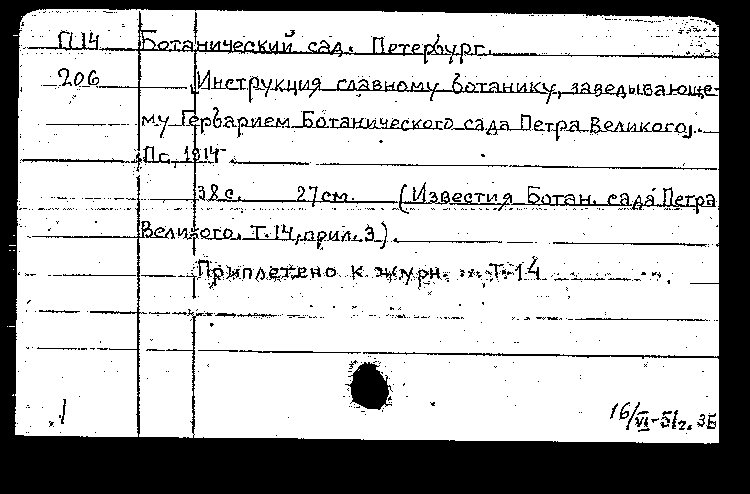 П14 Ботанический сад. Петербург.
206 Инструкция главному ботанику, заведывающе-
му Гербарием Ботанического сада Петра Великого.
Пс, 1914.
38 с. 27 см. (Известия Ботан. сада Петра
Великого. Т. 14, прил. 3).
Приплетено к журн. Т. 14
16/VI-51г. ЗБ